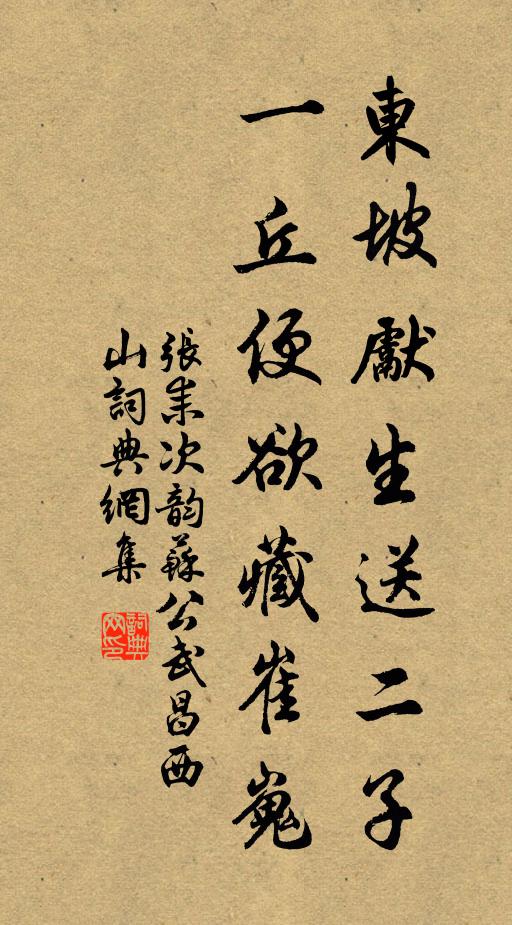 東坡獻生送二子
一丘便欲藏崔嵬
張耒次韵蘇公武昌西
山詞典網集
詞典
网印